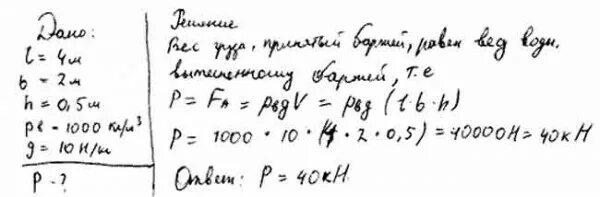 Дано:
l = 4м
b = 2м
h = 0,5м
ρв = 1000 кг/м³
g = 10 Н/кг
P - ?
Решение
Вес груза, принятый баржей, равен вед воды,
вытесненному баржей, т.е
P = FA = ρвgV = ρвg (l·b·h)
P = 1000 · 10 · (4 · 2 · 0,5) = 40000Н = 40кН
Ответ: P = 40кН